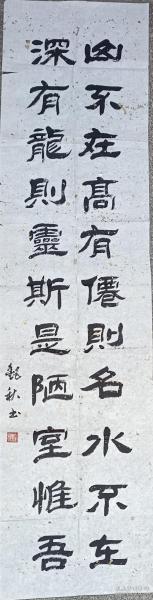 山不在高有僊則名水不在
深有龍則靈斯是陋室惟吾
觀秋书